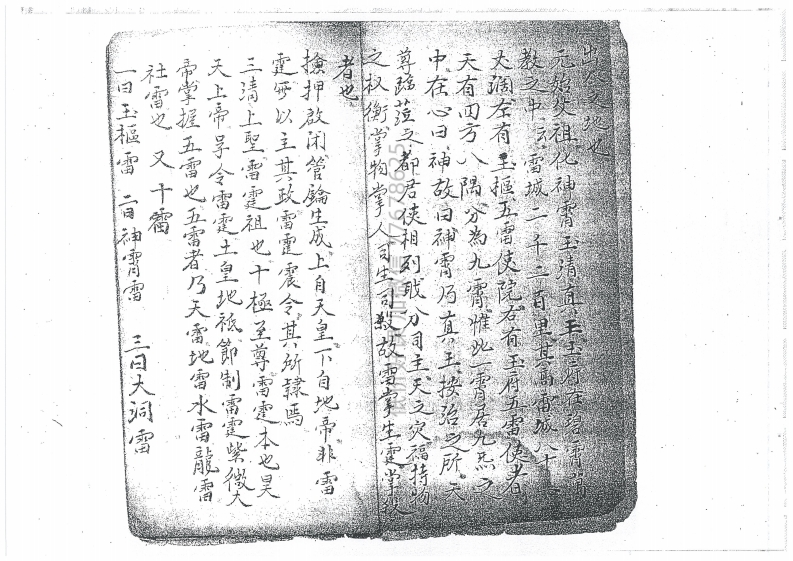 出於天地也
元始父祖化神霄玉清真王玉府在碧霄
敎之中去雷城二千二百里其高雷城八十一
丈濶左有玉樞五雷使院右有玉府五雷使者
天有四方八隅分為九霄惟此一霄居九炁之
中在心曰神故曰神霄乃真王按治之所天
尊臨蒞之都君侯相列職分司主天之灾福持物
之权衡掌物掌人司生司殺故雷掌生霆掌殺
者也
撿押啟閉管鑰生成上自天皇下自地帝非雷
霆無以主其政雷霆震令其所隸焉
三清上聖雷霆祖也十極至尊雷霆本也昊
天上帝号令雷霆土皇地祗節制雷霆紫微大
帝掌握五雷也五雷者乃天雷地雷水雷龍雷
社雷也 又十雷
一曰玉樞雷 二曰神霄雷 三曰大洞雷